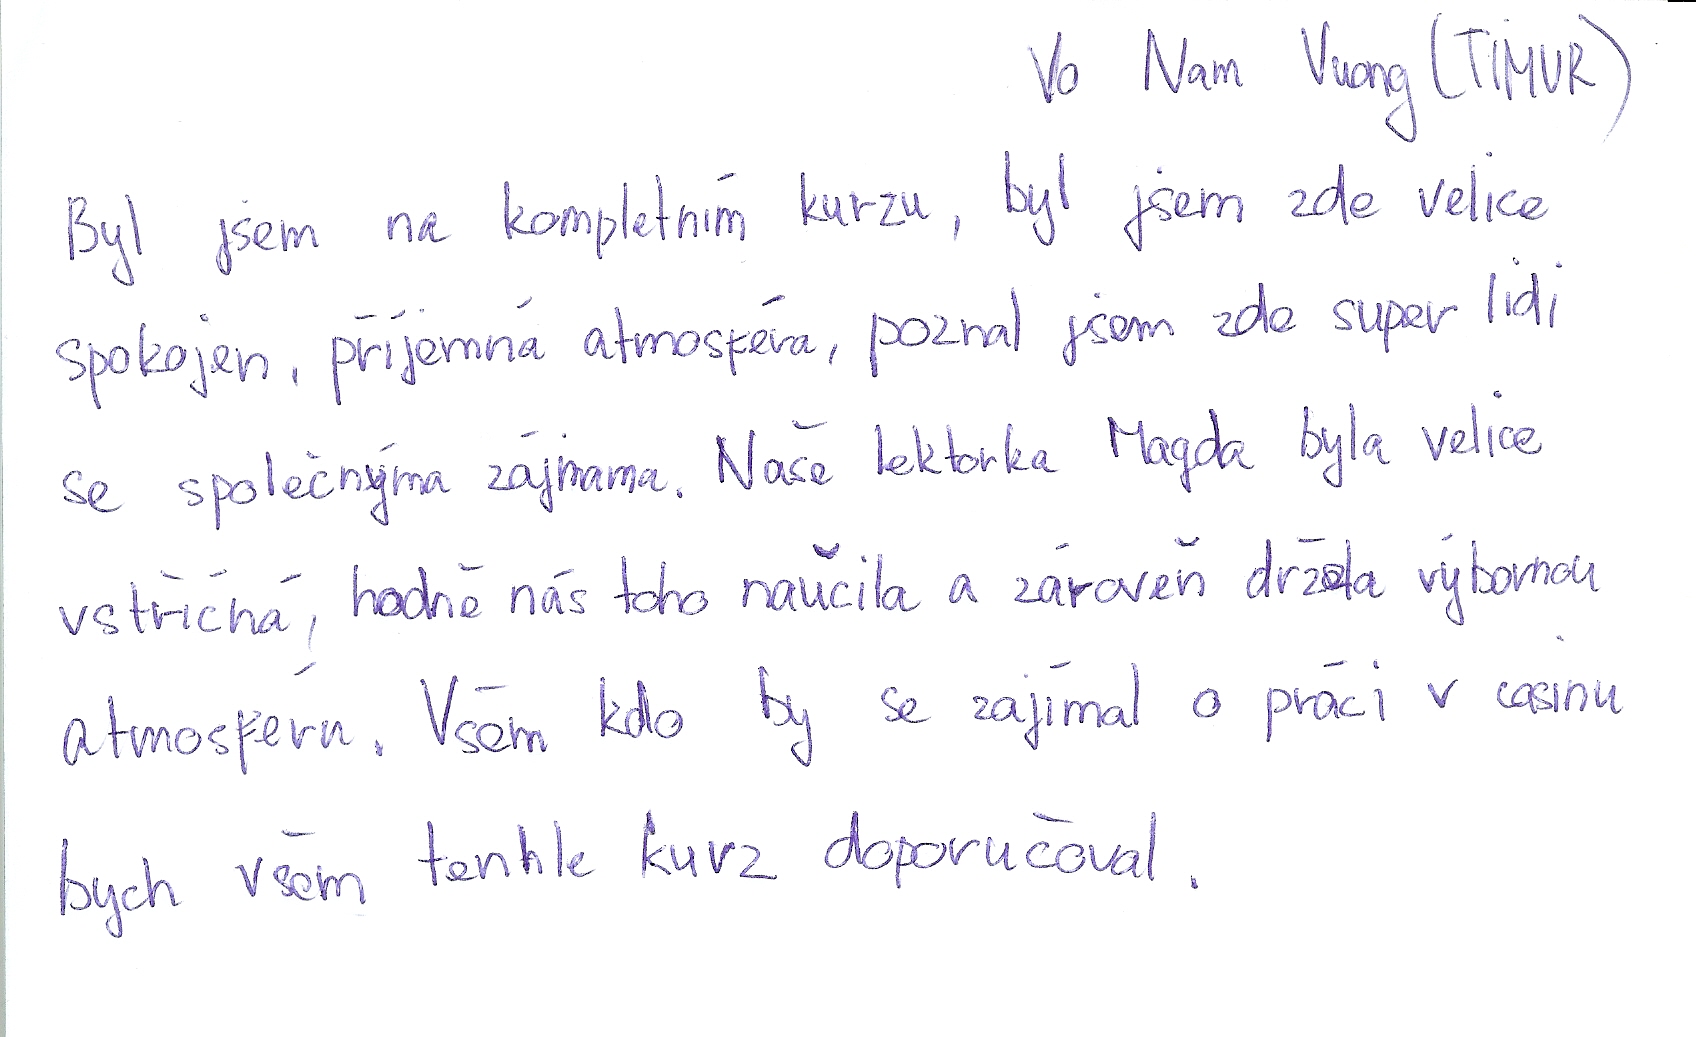 Vo Nam Vuong (TIMUR)
Byl jsem na kompletním kurzu, byl jsem zde velice
spokojen, příjemná atmosféra, poznal jsem zde super lidi
se společnýma zájmama. Naše lektorka Magda byla velice
vstřícná, hodně nás toho naučila a zároveň držela výbornou
atmosféru. Všem kdo by se zajímal o práci v casinu
bych všem tenhle kurz doporučoval.